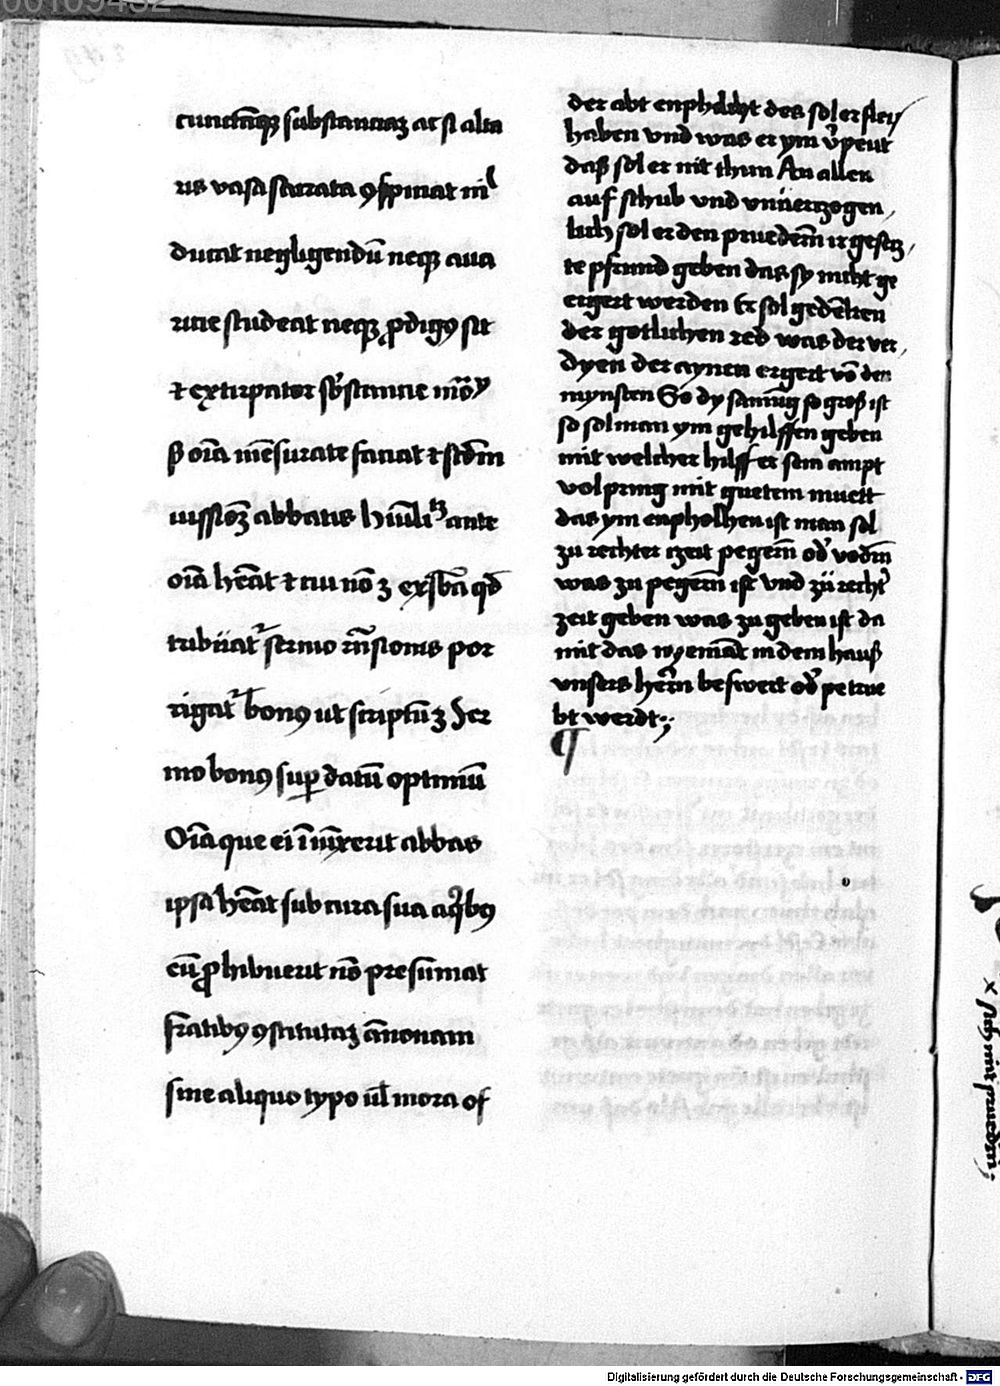 cunctāqꝫ substantiaꝫ ac si alta
ris vasa sacrata ꝯspiciat nil
ducat negligendū neqꝫ aua
ricie studeat neqꝫ ꝓdigꝯ sit
⁊ extirpator sb̄stancie
mēsurate faciat ⁊ scdm̄
iussioēꝫ abbatis ante
oīa hēat ⁊ cui nō ꝫ qd̄
sermo por
rigatr bonꝯ ut scriptū ꝫ Ser
mo bonꝯ suꝑ datū optimū
Oīa que ei īiūxerit abbas
ipsa hēat sub cura sua a qībꝯ
eū ꝓhibuerit nō presumat
fratibꝯ ꝯstitutaꝫ ānonam
sine aliquo typo ul̄ mora of
der abt enphilcht des sol er
haben vnd was er ym v̄peut
daß sol er nit thun An allen
auf schub vnd vnuerzogen
lich sol er den pruedern̄ ir gesecz
te pfrund geben das sy nicht ge
ergert werden Er sol gedēken
der gotlichen red was der ver
dyen der aynen ergert vō den
mynsten So dy samūg so groß ist
so sol man ym gehilffen geben
mit welcher hilff er sein ampt
volpring mit guetem muett
das ym enpholhen ist man sol
zu rechter czeit pegern̄ od̄ vodrn̄
was zu pegern̄ ist vnd zü rechr̄
zeit geben was zu geben ist da
mit das nyemāt in dem hauß
vnsers hern̄ beswert od̄ petrue
bt werdt
¶
× sich mit pruedern
Digitalisierung gefördert durch die Deutsche Forschungsgemeinschaft - DFG